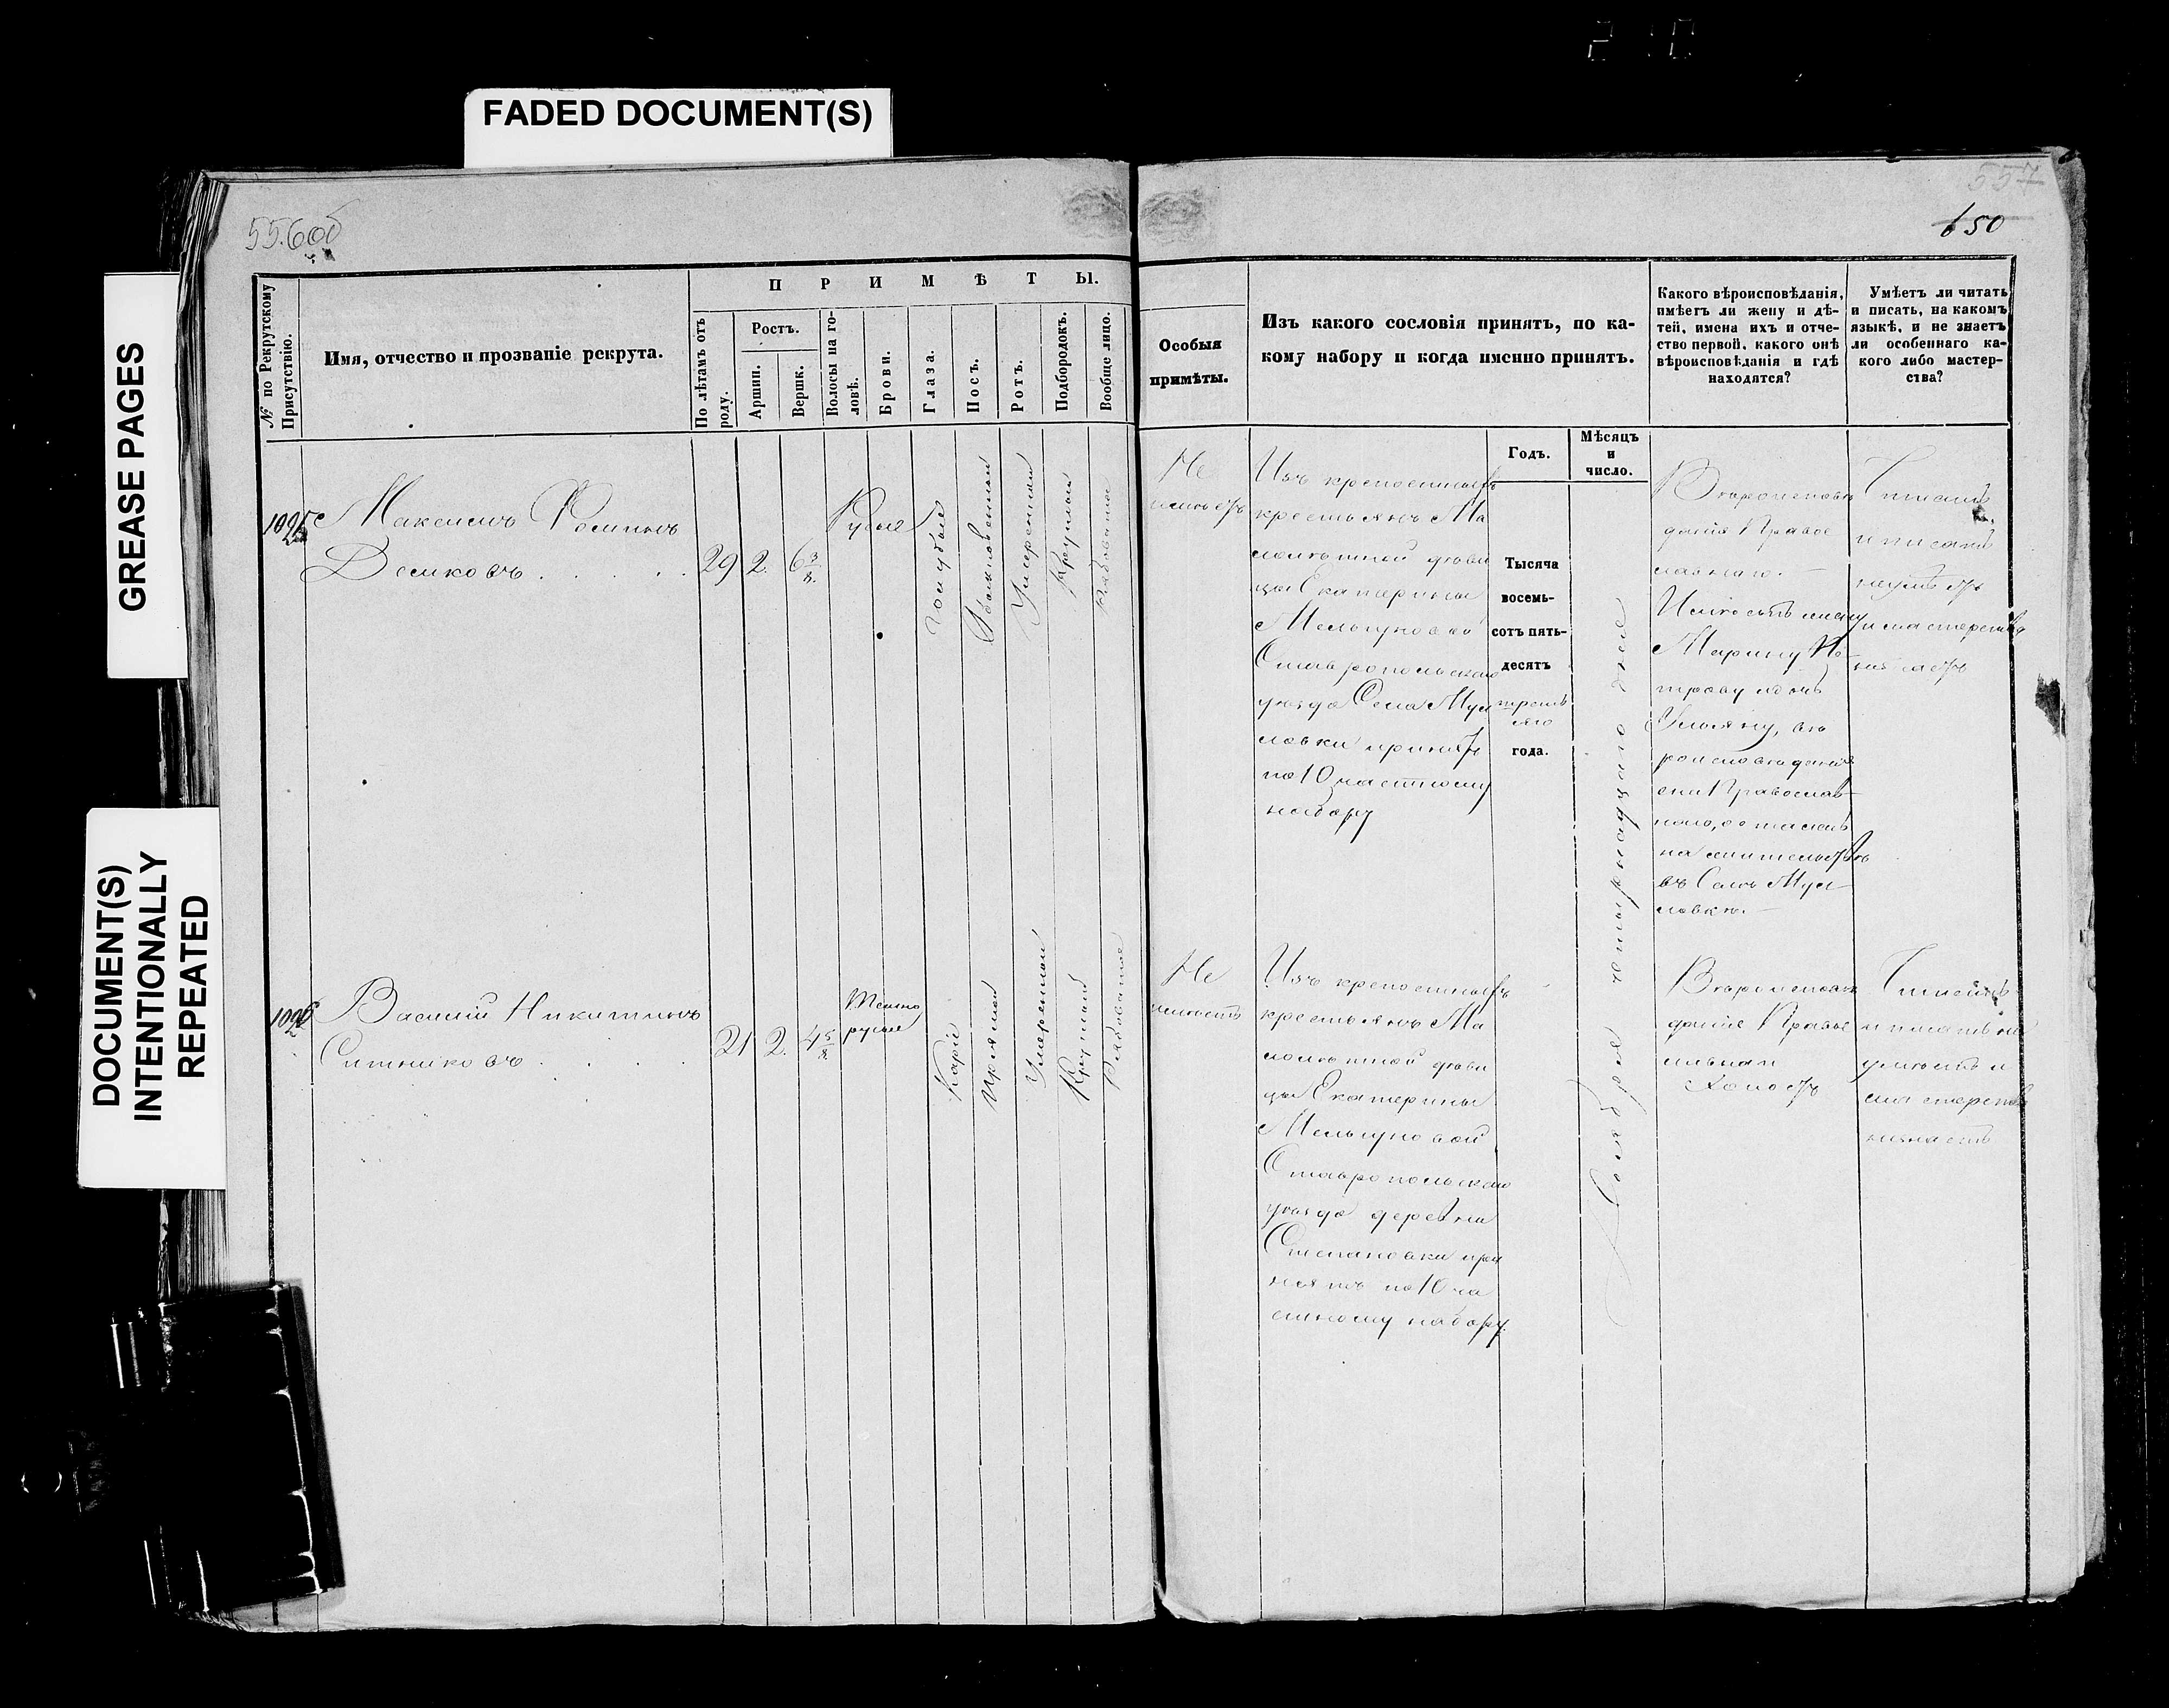 FADED DOCUMENT(S)
GREASE PAGES
DOCUMENT(S)
INTENTIONALLY
REPEATED
556об
557
650
№ по Рекрутскому
Присутствію.
Имя, отчество и прозваніе рекрута.
ПРИМѢТЫ.
По лѣтамъ отъ
роду.
Ростъ.
Аршин.
Вершк.
Волосы на го-
ловѣ.
Брови.
Глаза.
Носъ.
Ротъ.
Подбородокъ.
Вообще лицо.
Особыя
примѣты.
Изъ какого сословія принятъ, по ка-
кому набору и когда именно принятъ.
Годъ.
Мѣсяцъ
и
число.
Какого вѣроисповѣданія,
имѣетъ ли жену и дѣ-
тей, имена ихъ и отче-
ство первой, какого онѣ
вѣроисповѣданія и гдѣ
находятся?
Умѣетъ ли читать
и писать, на какомъ
языкѣ, и не знаетъ
ли особеннаго ка-
кого либо мастер-
ства?
1095
Максимъ Фоминъ
Демковъ
29
2.
6 3/8.
Русые
Голубые
Обыкновенный
Умеренный
Круглый
Рябоватое
Не
имѣетъ
Изъ крепостныхъ
крестьянъ Ма
лолѣтной дѣви
цы Екатерины
Мельгуновой
Ставропольскаго
уѣзда Села
принятъ
по 10 частному
набору
Тысяча
восемь-
сотъ пять-
десятъ
третья
яго
года.
Ноября четырнадцатого дня
Вѣроисповѣ
данія Правос
лавнаго.
Имѣетъ жену
Марину Пе
трову дочь
Ульяну, вѣ
роисповѣданія
они Православ
наго, остались
на жительствѣ
въ Селѣ
Читать
и писать
неумѣетъ
и мастерства
незнаетъ
1096
Василий Никитинъ
Ситниковъ
21
2.
4 5/8
Темно
русые
Карие
Прямой
Умеренный
Круглый
Рябоватое
Не
имѣетъ
Изъ крепостныхъ
крестьянъ Ма
лолѣтной дѣви
цы Екатерины
Мельгуновой
Ставропольскаго
уѣзда деревни
Степановки при
нятъ по 10 ча
стному набору.
Вѣроисповѣ
данія Правос
лавнаго
Холостъ
Читать
и писать не
умѣетъ и
мастерства
незнаетъ